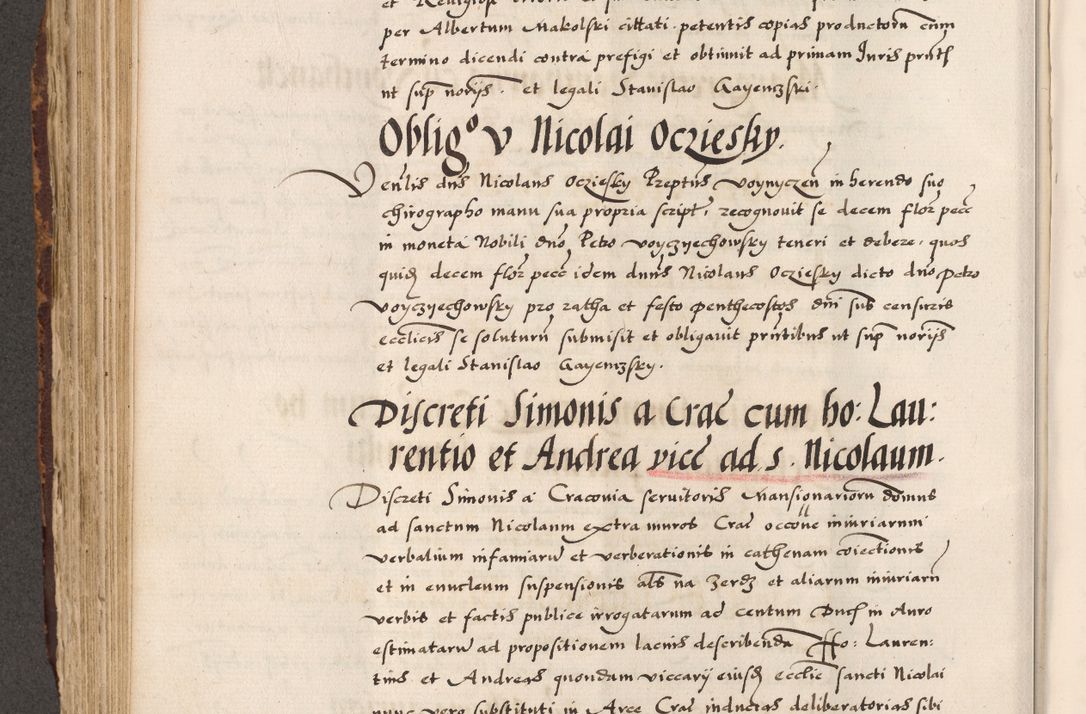 et Religios
per Albertum Makolski cittati petentis copias productorũ cum
termino dicendi contra prefigi et obtinuit ad primam Iuris pñtſ
ut sup norijs. et legali Stanislao Gayenczski.
Obligº V Nicolai Oczieſky.
Venlis dnš Nicolaus Oczieſky Pzeptus voynyczeñ inherendo suo
chirographo manu sua propria script, recognovit se decem florz pecc
in moneta Nobili dno Petro voyczyechowsky teneri et debere. quos
quidz decem florz pecc idem dnns Nicolaus Oczieſky dicto dno petro
voyczyechowsky pro ratha et festo penthecostes dni sub censuris
ecclicis se soluturũ submisit et obligavit pñtibus ut sup norijs
et legali Stanislao Gayenczsky.
Discreti Simonis a Crac cum ho: Lau:
rentio et Andrea vicc ad s. Nicolaum.
Discreti Simonis a Cracovia servitoris Mansionariorũ domus
ad sanctum Nicolaum extra muros Crac occone iniuriarum
verbalium infamiarũ et verberationis in cathenam coiectionis
et in enucleum suspensionis als na Zerdz et aliarum iniuriarũ
verbis et factis publice irrogatarum ad centum Ducſ in Auro
estimatarũ ad propositionem lacius describendã Ho: Lauren:
tius et Andreas quondam viccarij eiusdz ecclie sancti Nicolai
nunc vero substituti in Arce Crac inducias deliberatorias sibi